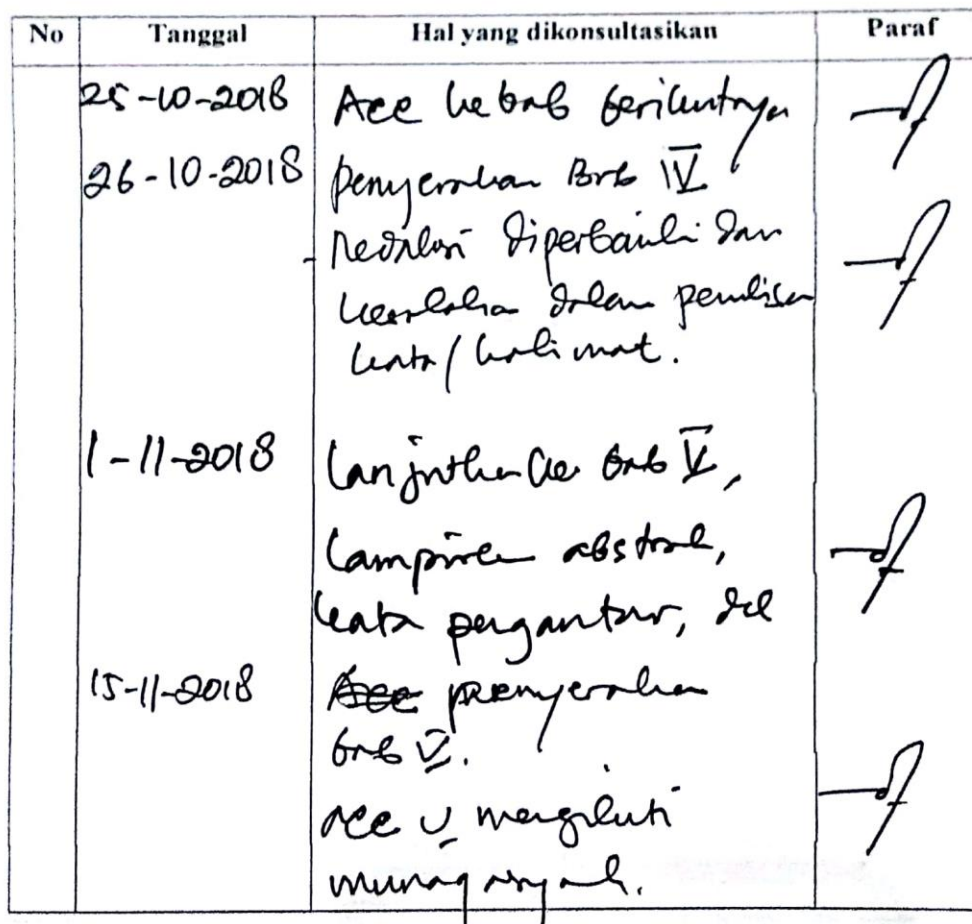 No Tanggal Hal yang dikonsultasikan Paraf
25-10-2018 Acc ke bab berikutnya
26-10-2018 penyerahan Bab IV
- Redaksi diperbaiki dan
kesalahan dalam penulisan
kata/kalimat.
1-11-2018 Lanjutkan ke bab V,
Lampiran abstrak,
kata pengantar, dll
15-11-2018 Acc penyerahan
bab V.
Acc U mengikuti
munaqasyah.